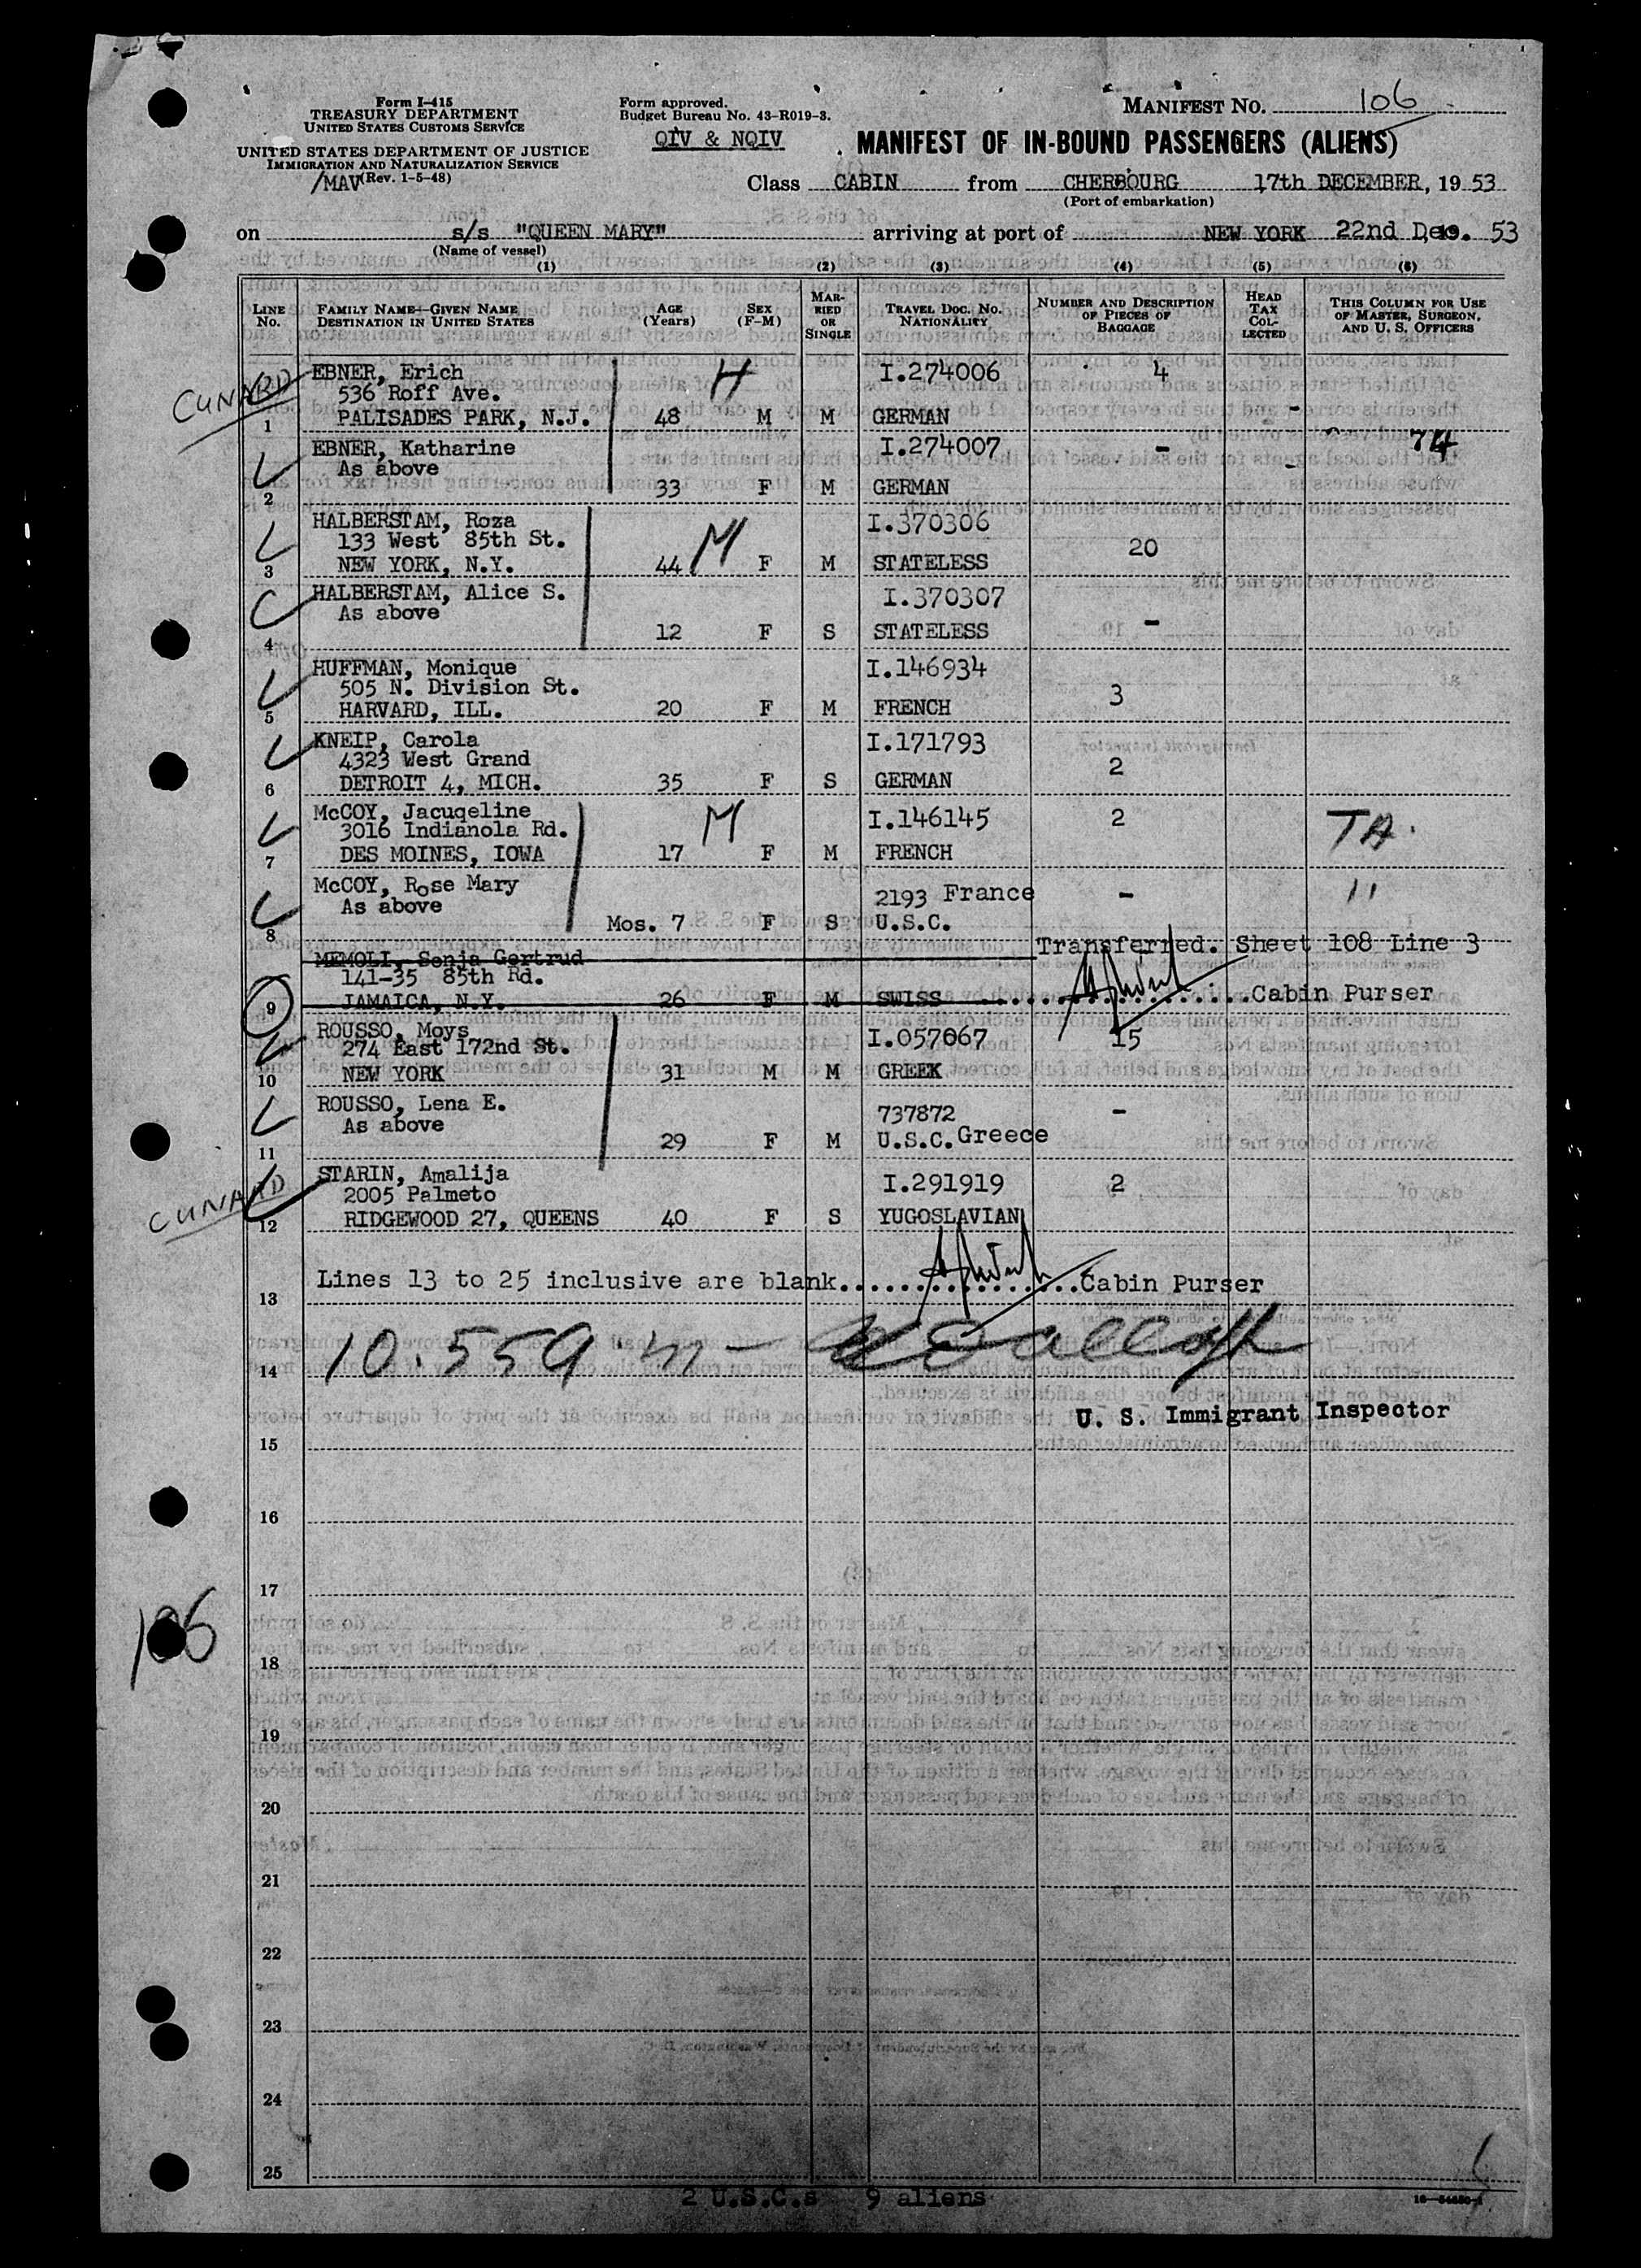 Form I-415
TREASURY DEPARTMENT
UNITED STATES CUSTOMS SERVICE
UNITED STATES DEPARTMENT OF JUSTICE
IMMIGRATION AND NATURALIZATION SERVICE
/MAV (Rev. 1-5-48)
Form approved.
Budget Bureau No. 43-R019-3.
QIV & NQIV
MANIFEST NO. 106
MANIFEST OF IN-BOUND PASSENGERS (ALIENS)
Class CABIN from CHERBOURG 17th DECEMBER, 19 53
(Port of embarkation)
on s/s "QUEEN MARY" arriving at port of NEW YORK 22nd Dec. 53
(Name of vessel)
(1) (2) (3) (4) (5) (6)
LINE No. FAMILY NAME—GIVEN NAME DESTINATION IN UNITED STATES AGE (Years) SEX (F-M) MARRIED OR SINGLE TRAVEL DOC. NO. NATIONALITY NUMBER AND DESCRIPTION OF PIECES OF BAGGAGE HEAD TAX COLLECTED THIS COLUMN FOR USE OF MASTER, SURGEON, AND U. S. OFFICERS
CUNARD
EBNER, Erich H I.274006 4
536 Roff Ave.
1 PALISADES PARK, N.J. 48 M M GERMAN -
EBNER, Katharine I.274007 - 74
As above
2 33 F M GERMAN
HALBERSTAM, Roza M I.370306
133 West 85th St. 20
3 NEW YORK, N.Y. 44 F M STATELESS
HALBERSTAM, Alice S. I.370307
As above -
4 12 F S STATELESS
HUFFMAN, Monique I.146934
505 N. Division St. 3
5 HARVARD, ILL. 20 F M FRENCH
KNEIP, Carola I.171793
4323 West Grand 2
6 DETROIT 4, MICH. 35 F S GERMAN
McCOY, Jacuqeline M I.146145 2 TA.
3016 Indianola Rd.
7 DES MOINES, IOWA 17 F M FRENCH
McCOY, Rose Mary 2193 France - 11
As above
8 Mos. 7 F S U.S.C.
MEMOLI, Sonja Gertrud Transferred. Sheet 108 Line 3
141-35 85th Rd.
9 JAMAICA, N.Y. 26 F M SWISS ....Cabin Purser
ROUSSO, Moys I.057067 15
274 East 172nd St.
10 NEW YORK 31 M M GREEK
ROUSSO, Lena E. 737872 -
As above
11 29 F M U.S.C. Greece
CUNARD
STARIN, Amalija I.291919 2
2005 Palmeto
12 RIDGEWOOD 27, QUEENS 40 F S YUGOSLAVIAN
Lines 13 to 25 inclusive are blank................Cabin Purser
13
14 10.559 m -
U. S. Immigrant Inspector
15
16
17
106
18
19
20
21
22
23
24
25
2 U.S.C.s 9 aliens